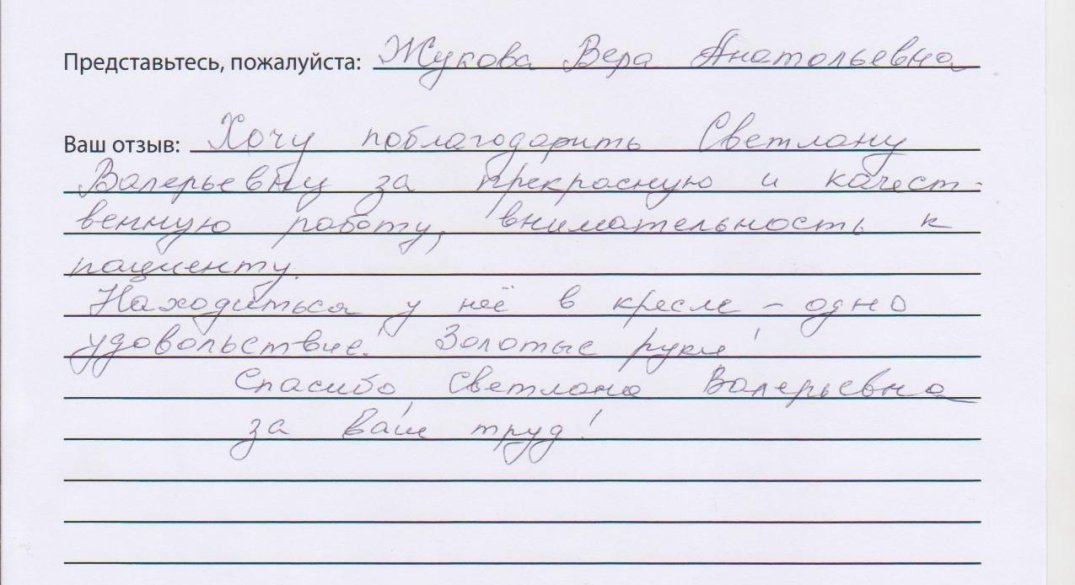 Представьтесь, пожалуйста: Жукова Вера Анатольевна
Ваш отзыв: Хочу поблагодарить Светлану
Валерьевну за прекрасную и качест-
венную работу, внимательность к
пациенту.
Находиться у неё в кресле – одно
удовольствие! Золотые руки!
Спасибо, Светлана Валерьевна
за ваш труд!